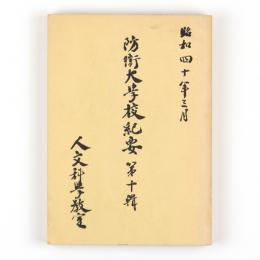 昭和四十年三月
防衛大学校紀要 第十輯
人文科学教室